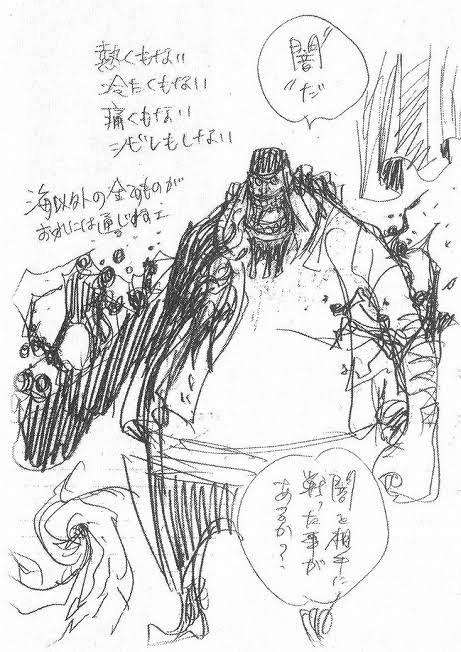 "闇"
"だ"
熱くもない
冷たくもない
痛くもない
シビレもしない
海以外の全てのものが
おれには通じねェ
闇を相手に
戦った事が
あるか?